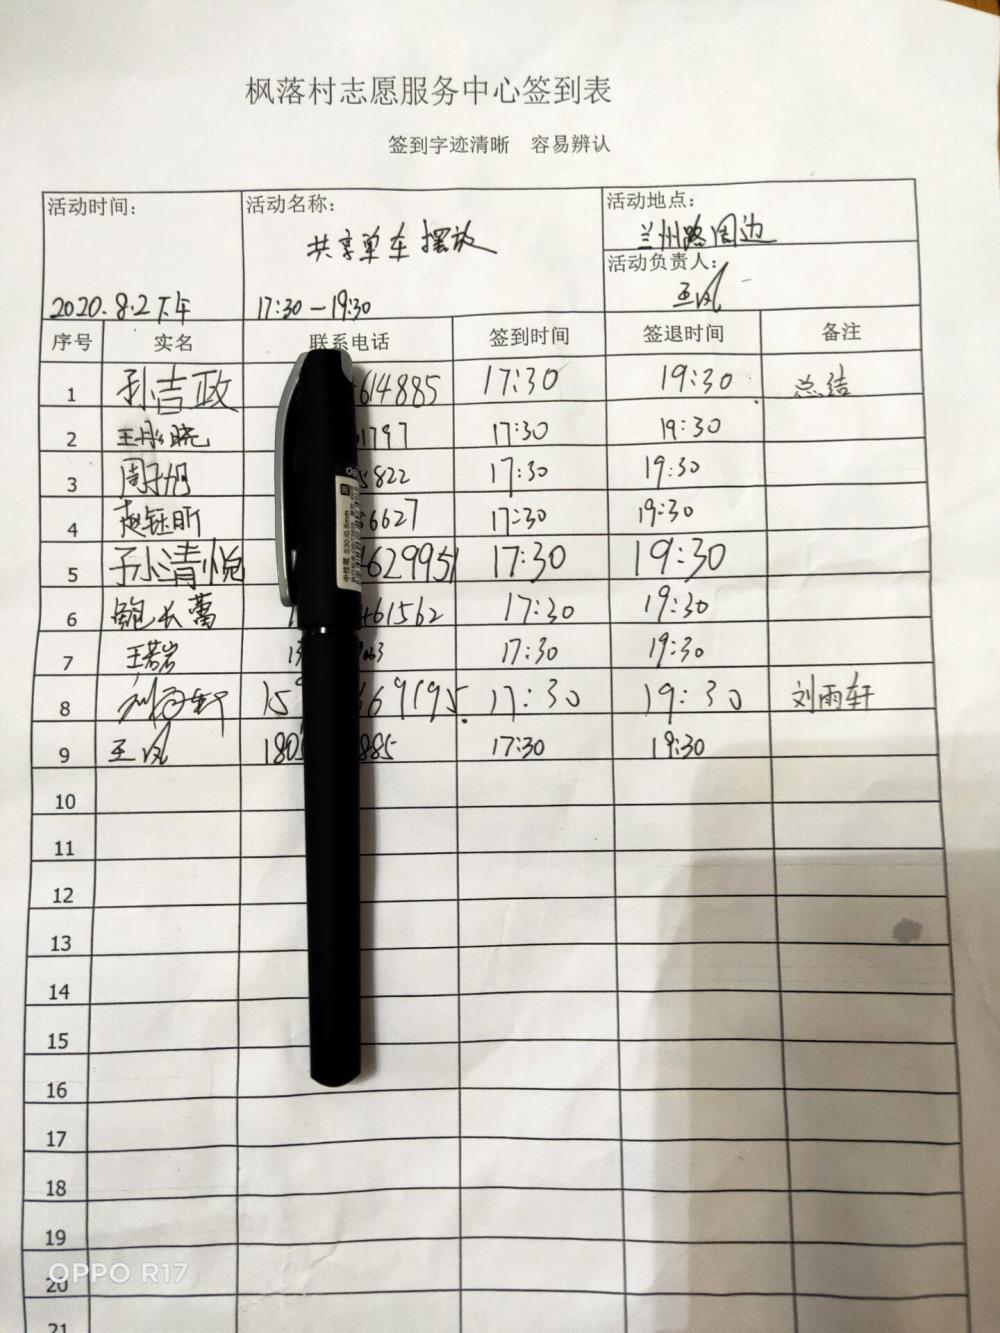 枫落村志愿服务中心签到表
签到字迹清晰 容易辨认
活动时间: 活动名称: 活动地点:
共享单车摆放 兰州路周边
活动负责人:
2020.8.2下午 17:30-19:30 王凤
序号 实名 联系电话 签到时间 签退时间 备注
1 孙吉政 614885 17:30 19:30 总结
2 王彤晓 1797 17:30 19:30
3 周子旭 5822 17:30 19:30
4 赵钰昕 6627 17:30 19:30
5 孙清悦 629951 17:30 19:30
6 鲍长蕾 61562 17:30 19:30
7 王若岩 13 63 17:30 19:30
8 刘雨轩 159 669195. 17:30 19:30 刘雨轩
9 王凤 180 885 17:30 19:30
10
11
12
13
14
15
16
17
18
19
20
21
中性笔 S30/0.5mm
OPPO R17